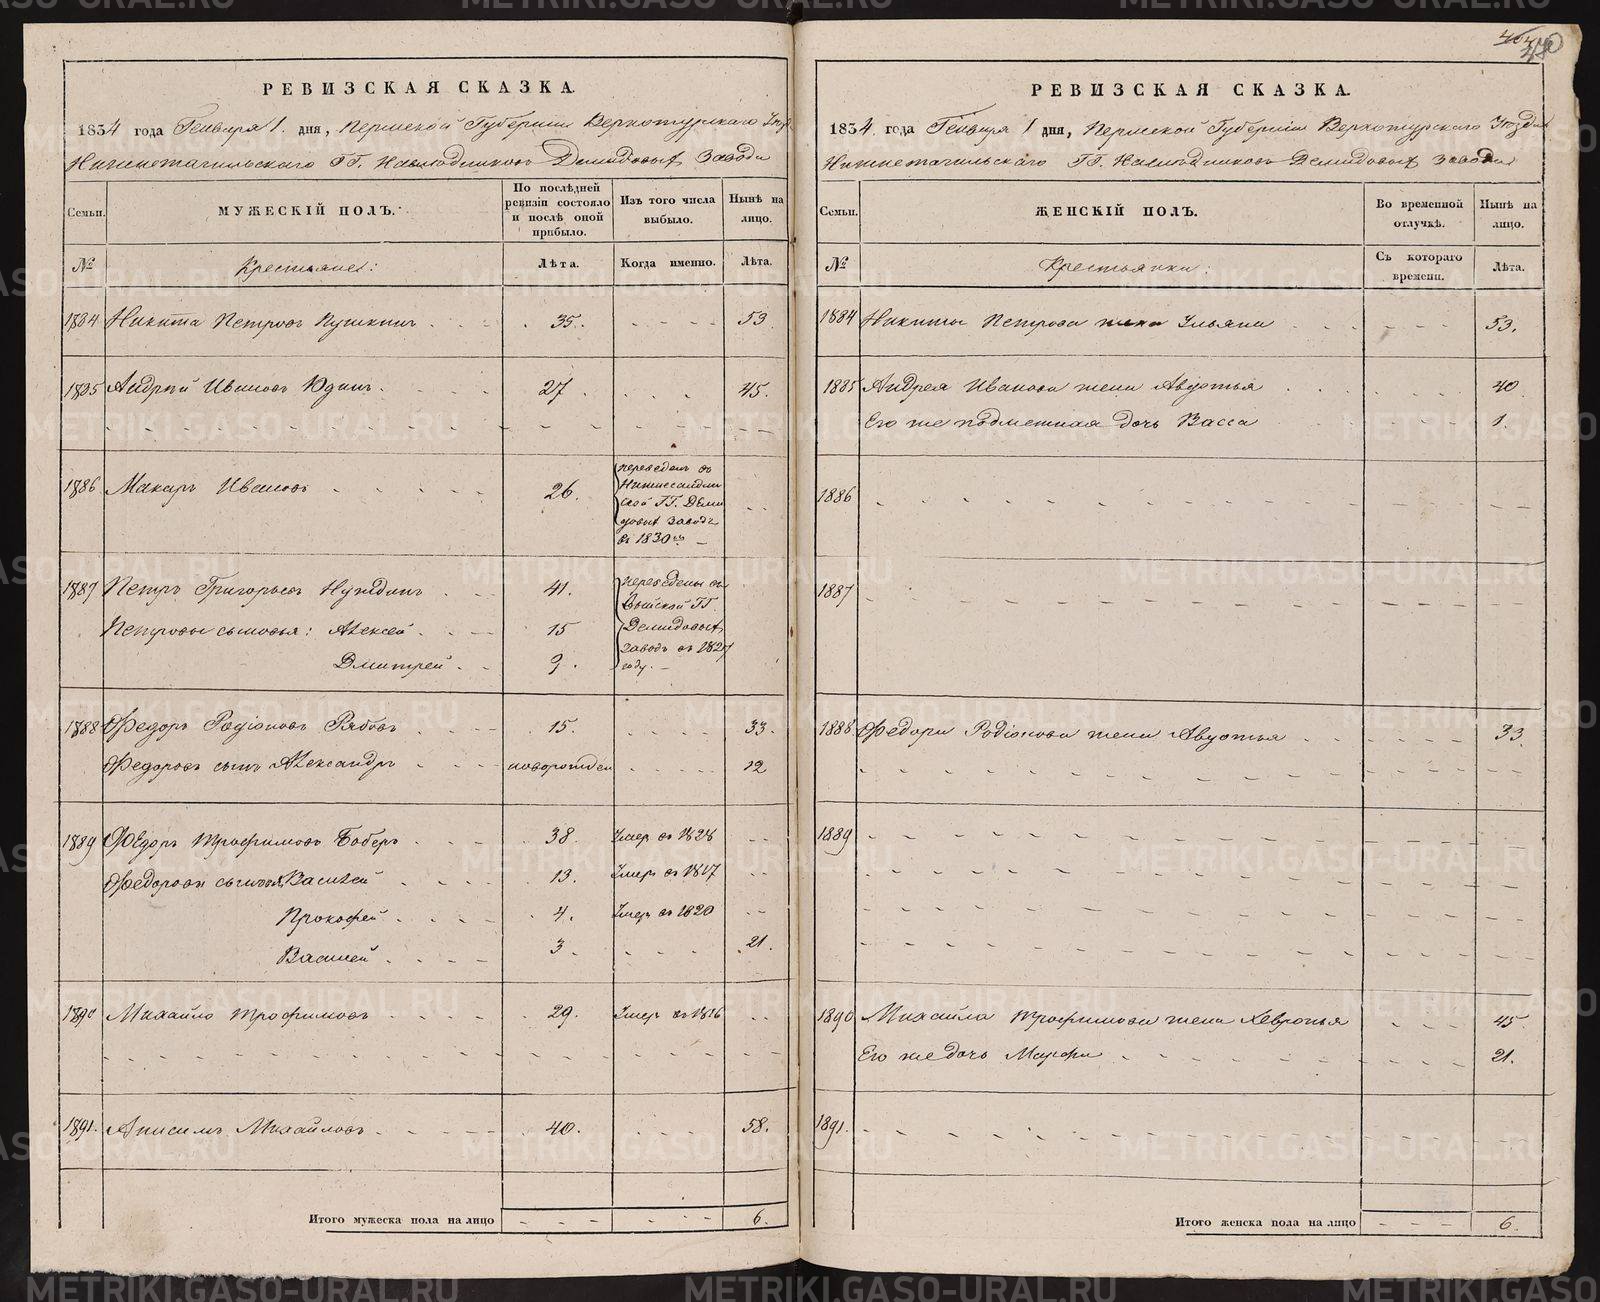 404
480
РЕВИЗСКАЯ СКАЗКА.
1834 года Генваря 1. дня, Пермской Губернiи Верхотурскаго Уезда
Нижнетагильскаго ГГ. Наследниковъ Демидовыхъ Завода
Семьи. МУЖЕСКIЙ ПОЛЪ. По послѣдней ревизiи состояло и послѣ оной прибыло. Изъ того числа выбыло. Нынѣ на лицо.
№ Крестьяне: Лѣта. Когда именно. Лѣта.
1884 Никита Петровъ Пушкинъ 35. 53
1885 Андрей Ивановъ Юдинъ 27 45.
1886 Макаръ Ивановъ 26. переведенъ въ
Нижнесалдин
ской ГГ. Деми
довыхъ заводъ
въ 1830мъ
1887 Петръ Григорьевъ Нуждинъ 41. переведены въ
Выйской ГГ.
Петровы сыновья: Алексей 15 Демидовыхъ
заводъ въ 1827
Дмитрей 9. году.
1888 Федоръ Родiоновъ Рябовъ 15. 33.
Федоровъ сынъ Александръ новорожден 12
1889 Федоръ Трофимовъ Боберъ 38. Умер въ 1828
Федоровы сыновья Василей 13. Умеръ въ 1817
Прокофей 4. Умеръ въ 1820
Василей 3. 21.
1890 Михайло Трофимовъ 29. Умер въ 1816
1891. Анисимъ Михайловъ 40. 58.
Итого мужеска пола на лицо 6.
РЕВИЗСКАЯ СКАЗКА.
1834 года Генваря 1 дня, Пермской Губернiи Верхотурскаго Уезда
Нижнетагильскаго ГГ. Наследниковъ Демидовыхъ завода
Семьи. ЖЕНСКIЙ ПОЛЪ. Во временной отлучкѣ. Нынѣ на лицо.
№ Крестьянки: Съ котораго времени. Лѣта.
1884 Никиты Петрова жена Ульяна 53.
1885 Андрея Иванова жена Авдотья 40
Его же подметная дочь Васса 1.
1886
1887
1888 Федора Родiонова жена Авдотья 33.
1889
1890 Михайла Трофимова жена Хевронья 45
Его же дочь Марфа 21.
1891.
Итого женска пола на лицо 6.
METRIKI.GASO-URAL.RU